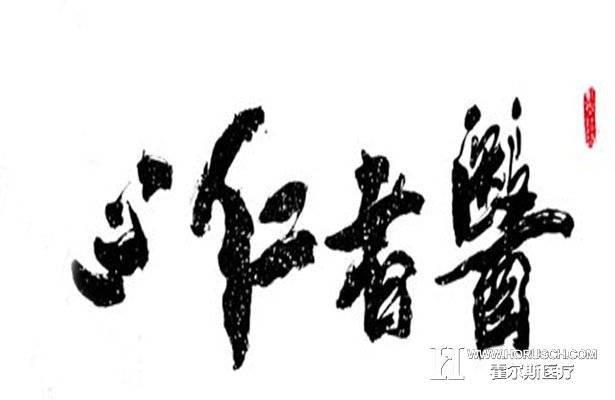 醫者仁心
WWW.HORUSCH.COM
霍尔斯医疗